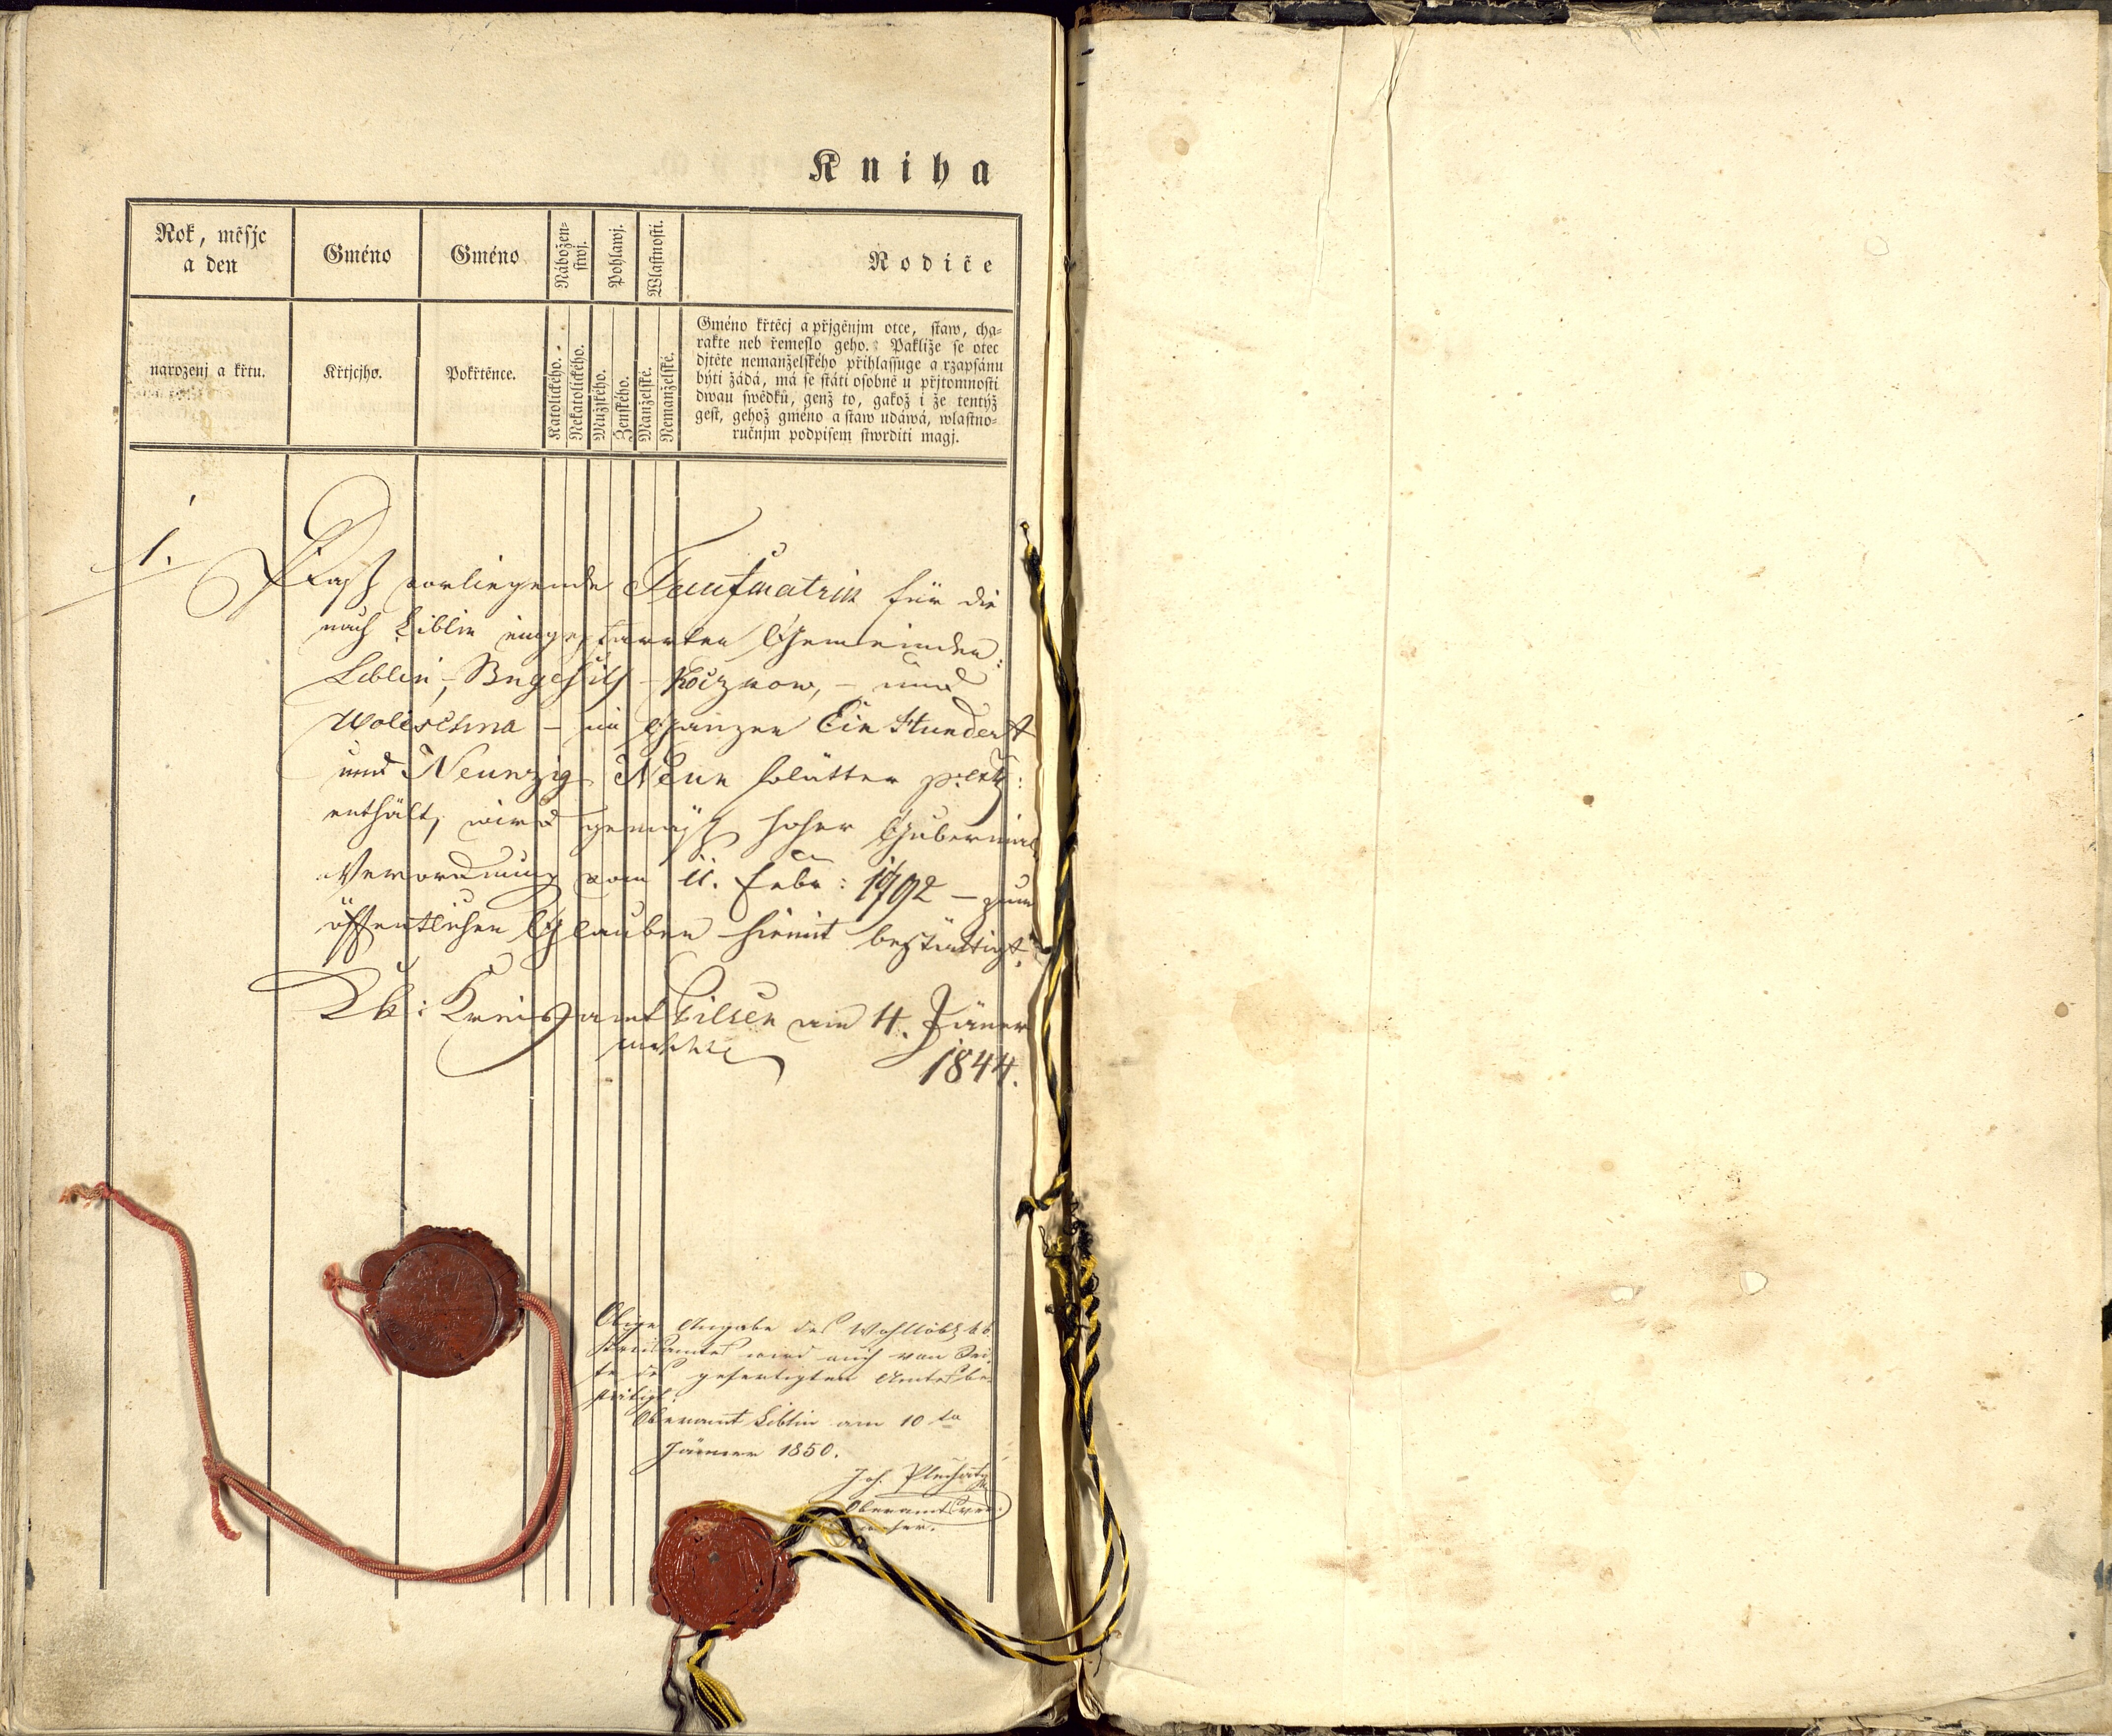 Kniha
Rok, měsjc
a den
Gméno
Gméno
Nábožen-
stwj.
Pohlawj.
Wlastnosti.
Rodiče
narozenj a křtu.
Křtjcjho.
Pokřtěnce.
Katolického.
Nekatolického.
Mužského.
Ženského.
Manželské.
Nemanželské.
Gméno křtěcj a přjgěnjm otce, staw, cha-
rakte neb řemeslo geho. Pakliže se otec
djtěte nemanželského přihlassuge a rzapsánu
býti žádá, má se státi osobně u přjtomnosti
dwau swědků, genž to, gakož i že tentýž
gest, gehož gméno a staw udáwá, wlastno-
ručnjm podpisem stwrditi magj.
1.
Daß vorliegende Taufmatrik für die
nach Liblin eingepfarrten Gemeinden:
Liblin, – – und
Woleschna – im Ganzen Ein Hundert
und Neunzig Neun Blätter
enthält, wird gemäß hoher Gubernial
Verordnung vom 11. Febr: 1792 – zum
öffentlichen Glauben hiemit bestättigt.
Kk: Kreisamt Pilsen am 4. Jäner
1844.
Obige Angabe des Wohllöbl kk
Kreisamtes wird auch von Sei-
te des gefertigten Amtes be-
stätigt.
Oberamt Liblin am 10 tn
Jänner 1850.
Joh.
Oberamtsver-
weser.